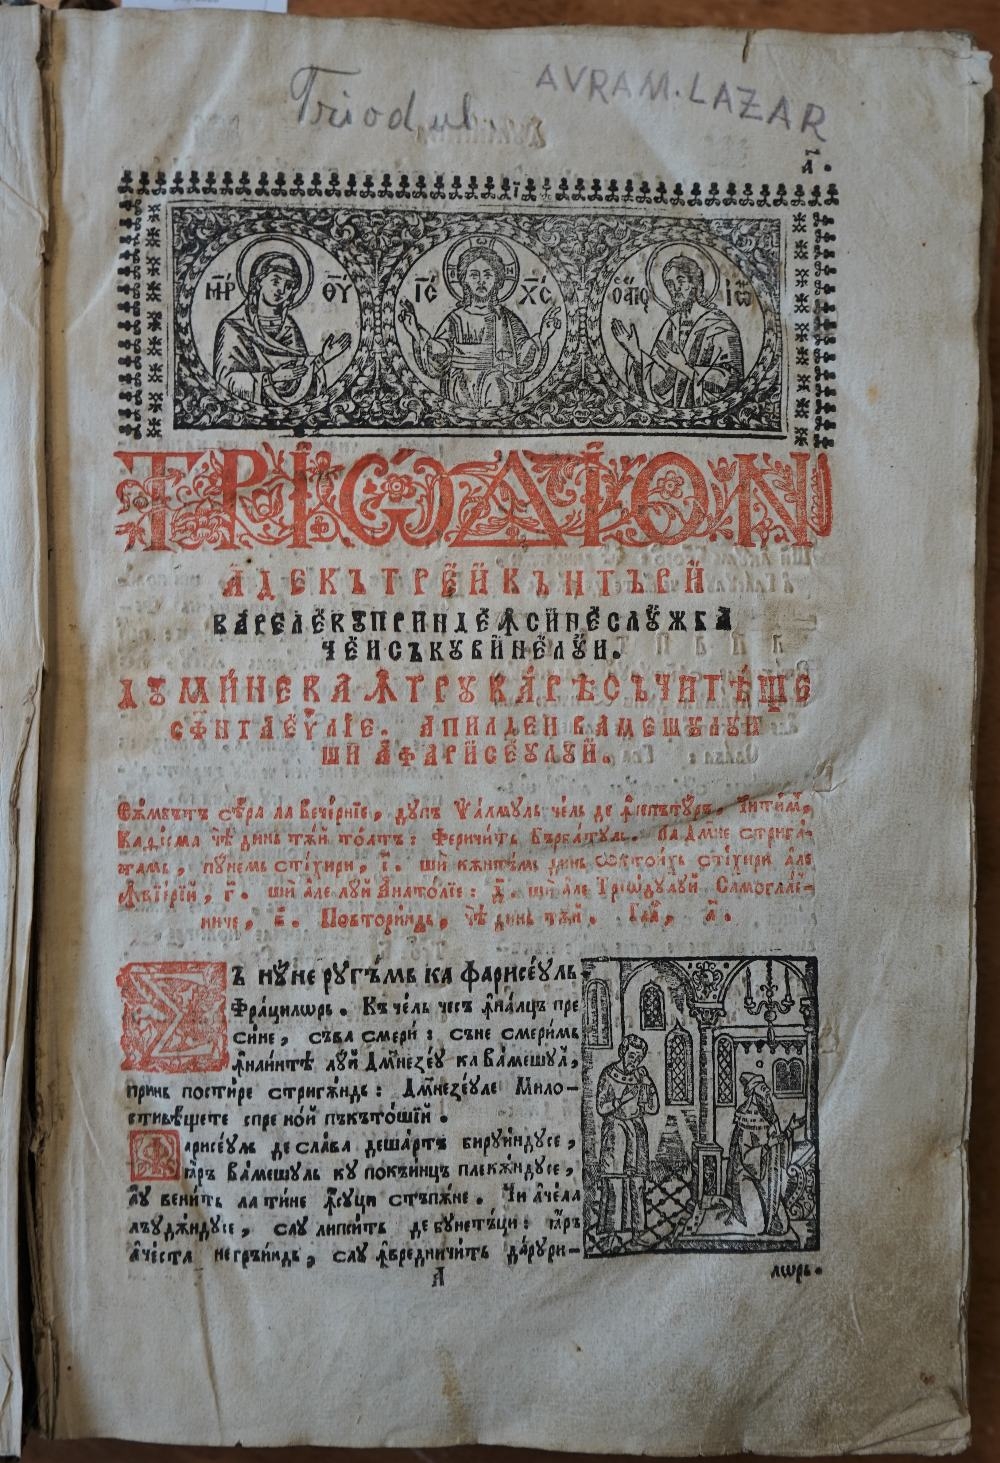 Triodul
AVRAM. LAZAR
а҃.
М҃Р Ѳ҃У І҃С Х҃С ОАГІОС ІѠ
ТРІѠДІОН
АДЕКЪ ТРЕЙ КЪНТЪРЙ
КАРЕЛЕ КУПРИНДЕ ꙞСИНЕ СЛꙊЖБА
ЧЕИ СЪ КУВИНЕ ЛꙊИ.
ДꙊМИНЕКА ꙞТРУ КАРѢ СЪ ЧИТѢЩЕ
СФНТА ЕѴЛІЕ. А ПИЛДЕИ ВАМЕШꙊЛꙊИ
ШИ А ФАРИСЕꙊЛꙊЙ.
Сѫмбътъ сѣра ла Вечерніе, дупъ Ѱалмуль чель де ꙟчепътꙋръ. Читимь,
Кадісма чѣ динь тѫй тоатъ: Феричить Бърбатуль. Ла Дмне стрига-
тамь, пунемь стіхири, і҃. ши кѫнтъмь динь октоихь стіхири але
ꙟвіерїй, г҃. ши але луй Анатоліе: д҃. ши але Тріѡдулуй Самоглас-
ниче, в҃. Повториндь, чѣ динь тѫй. Глас, а҃.
Съ нꙋ не ругъмь ка фарисеуль
Фрацилѡрь. Къ чель чесъ ꙟналцъ пре
сине, съва смери: съне смеримь
ꙟнаинтѣ луй Дмнезеу ка Вамешул,
принь постире стригѫндь: Дмнезеуле Мило-
стивѣщете спре ной пъкътошїй.
Фарисеул де слава дешартъ бируиндусе,
ꙗръ Вамешуль ку покъинцъ плекѫндусе,
ау венить ла тине ꙟсуци стъпѫне. Чи ачела
лъудѫндусе, сау липсить де бунетъци: ꙗръ
ачеста неграиндь, сау ꙟвредничить дарури-
А
лѡрь.